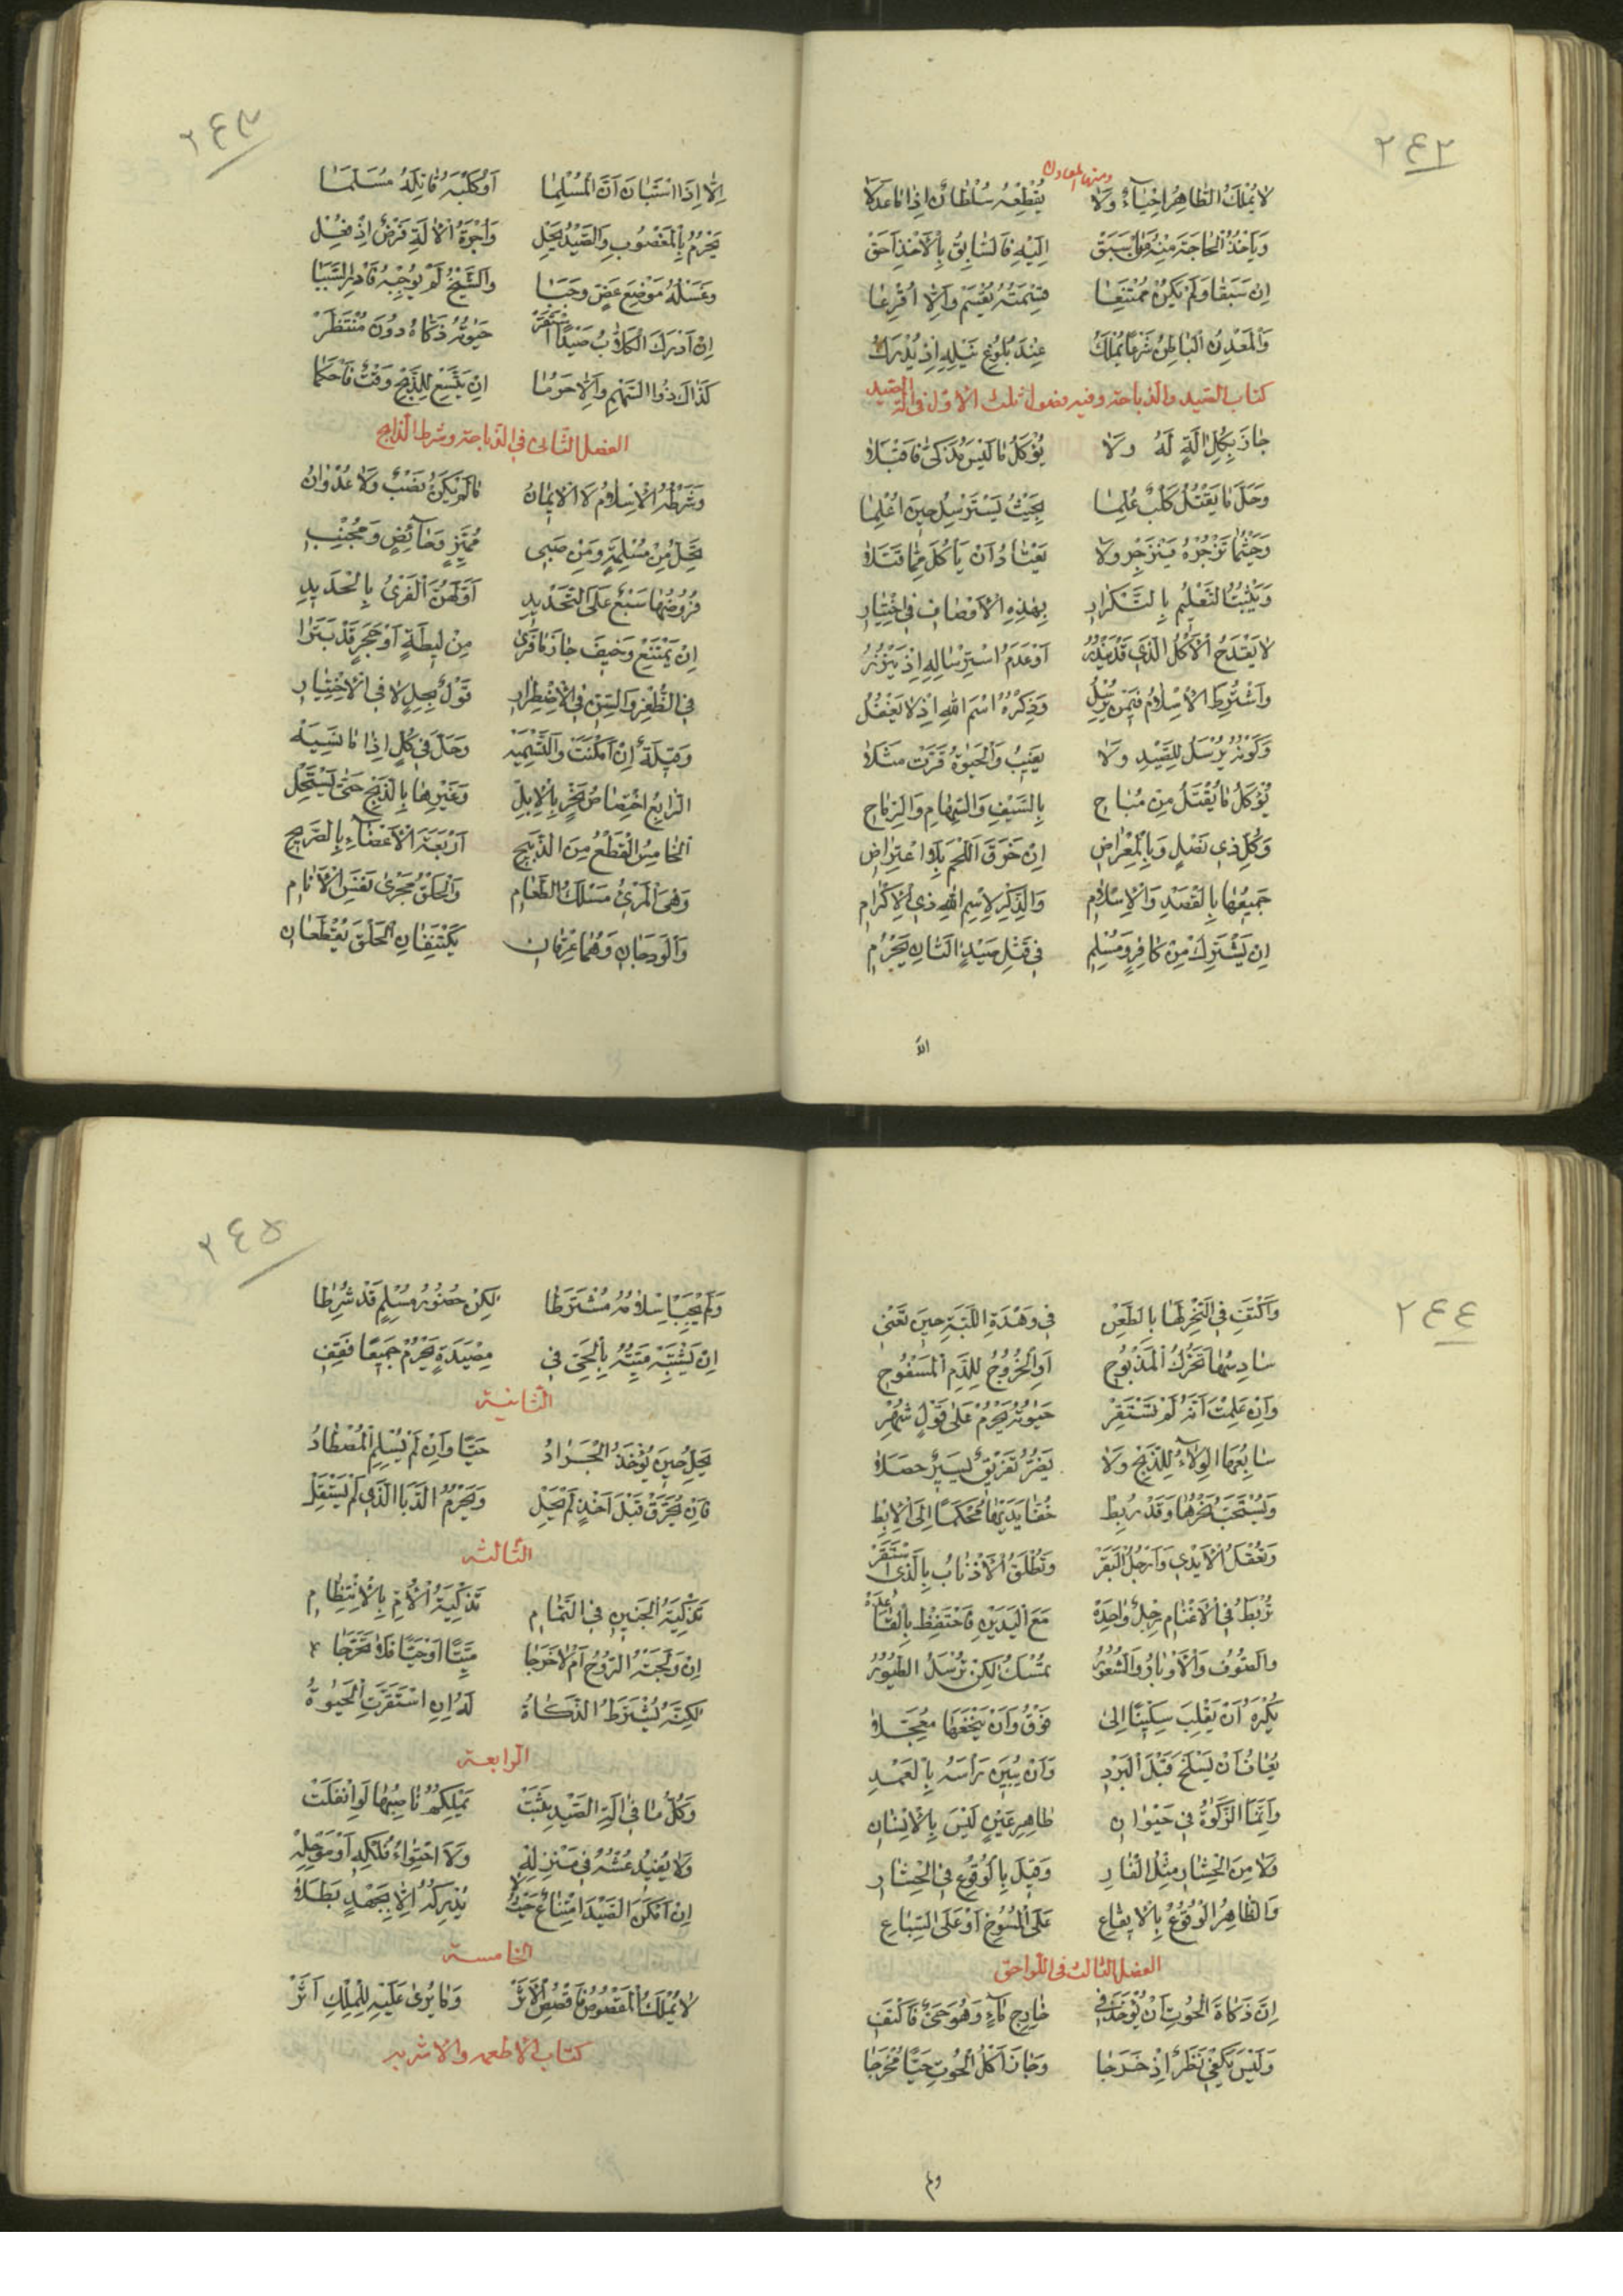 ٢٤٢
ومنها المعادن
لا يُمْلَكُ الظّاهِرُ اِحْيَاءً وَلا يُقْطِعُهُ سُلْطانٌ اِذا ما عَدَلا
وَيَأْخُذُ الْحاجَةَ مِنْهُ مَنْ سَبَقْ اِلَيْهِ فَالسّابِقُ بِالْاَخْذِ اَحَقْ
اِنْ سَبَقا وَلَمْ يَكُنْ مُمْتَنِعا قِسْمَتُهُ يُقْسَمْ وَاِلّا اُقْرِعا
وَالْمَعْدِنُ الْباطِنُ شَرْعًا يُمْلَكُ عِنْدَ بُلُوغِ نَيْلِهِ اِذْ يُدْرَكُ
كتاب الصيد والذباحة وفيه فصول ثلث الاول في الة الصيد
جازَ بِكُلِّ الَةٍ لَهُ وَلا يُؤْكَلُ ما لَيْسَ مُذَكًّى فَاقْبَلا
وَحَلَّ ما يَقْتُلُ كَلْبٌ عُلِّما بِحَيْثُ يَسْتَرْسِلُ حينَ اُعْلِما
وَحَيْثُما تَزْجُرُهُ يَنْزَجِرُ وَلا يَعْتادُ اَنْ يَأْكُلَ مِمّا قَتَلا
وَيَثْبُتُ التَّعْليمُ بِالتَّكْرارِ بِهٰذِهِ الْاَوْصافِ فِي اخْتِبارِ
لا يَقْدَحُ الْاَكْلُ الَّذي قَدْ يَنْدُرُ اَوْ عَدَمُ اسْتِرْسالِهِ اِذْ يَنْزُرُ
وَاشْتُرِطَ الْاِسْلامُ فيمَنْ يُرْسِلُ وَذِكْرُهُ اسْمَ اللهِ اِذْ لا يَغْفُلُ
وَكَوْنُهُ يُرْسَلُ لِلصَّيْدِ وَلا يَغيبُ وَالْحَيٰوةُ قَرَّتْ مَثَلا
يُؤْكَلُ ما يُقْتَلُ مِنْ مُباحِ بِالسَّيْفِ وَالسِّهامِ وَالرِّماحِ
وَكُلِّ ذي نَصْلٍ وَبِالْمِعْراضِ اِنْ خَرَقَ اللَّحْمَ بِلَا اعْتِراضِ
جَميعُها بِالْقَصْدِ وَالْاِسْلامِ وَالذِّكْرِ لِاسْمِ اللهِ ذِي الْاِكْرامِ
اِنْ يَشْتَرِكْ مِنْ كافِرٍ وَمُسْلِمِ في قَتْلِ صَيْدٍ اثْنانِ يَحْرُمِ
الّا
٢٤٣
اِلّا اِذَا اسْتَبانَ اَنَّ الْمُسْلِما اَوْ كَلْبَهُ قاتِلُهُ مُسَلَّما
يَحْرُمُ بِالْمَغْصُوبِ وَالصَّيْدُ يَحِلْ وَاُجْرَةُ الْالَةِ فَرْضٌ اِذْ فُعِلْ
وَغَسْلُهُ مَوْضِعَ عَضٍّ وَجَبا وَالشَّيْخُ لَمْ يُوجِبْهُ فَادْرِ السَّبَبا
اِنْ اَدْرَكَ الْكَلّابُ صَيْدًا اسْتَقَرّْ حَيٰوتُهُ ذَكّاهُ دُونَ مُنْتَظَرْ
كَذاكَ ذُو السَّهْمِ وَاِلّا حَرُما اِنْ يَتَّسِعْ لِلذَّبْحِ وَقْتٌ فَاحْكُما
الفصل الثاني في الذباحة وشرط الذابح
وَشَرْطُهُ الْاِسْلامُ لَا الْايمانُ ما لَمْ يَكُنْ نَصْبٌ وَلا عُدْوانُ
يَحِلُّ مِنْ مُسْلِمَةٍ وَمِنْ صَبِي مُمَيِّزٍ وَحائِضٍ وَمُجْنِبِ
فُرُوضُها سَبْعٌ عَلَى التَّحْديدِ اَوَّلُهُنَّ الْفَرْيُ بِالْحَديدِ
اِنْ يَمْتَنِعْ وَخيفَ جازَ ما فَرى مِنْ ليطَةٍ اَوْ حَجَرٍ قَدْ بَتَرا
فِي الظُّفْرِ وَالسِّنِّ فِي الْاِضْطِرارِ قَوْلٌ بِحِلٍّ لا فِي الْاِخْتِيارِ
وَقِبْلَةٌ اِنْ اَمْكَنَتْ وَالتَّسْمِيَهْ وَحَلَّ في كُلٍّ اِذا ما نَسِيَهْ
اَلرّابِعُ اخْتِصاصُ نَحْرٍ بِالْاِبِلْ وَغَيْرِها بِالذَّبْحِ حَتّى يَسْتَحِلْ
اَلْخامِسُ الْقَطْعُ مِنَ الذَّبيحِ اَرْبَعَةَ الْاَعْضاءِ بِالصَّريحِ
وَهْيَ الْمَرِيُّ مَسْلَكُ الطَّعامِ وَالْحَلْقُ مَجْرى نَفَسِ الْاَنامِ
وَالْوَدَجانِ وَهُما عِرْقانِ يَكْتَنِفانِ الْحَلْقَ يُقْطَعانِ
٢٤٤
وَاكْتَفِ فِي النَّحْرِ لَها بِالطَّعْنِ في وَهْدَةِ اللَّبَّةِ حينَ تَعْني
سادِسُها تَحَرُّكُ الْمَذْبُوحِ اَوِ الْخُرُوجُ لِلدَّمِ الْمَسْفُوحِ
وَاِنْ عَلِمْتَ اَنَّهُ لَمْ تَسْتَقِرْ حَيٰوتُهُ يَحْرُمْ عَلى قَوْلٍ شُهِرْ
سابِعُهَا الْوِلاءُ لِلذَّبْحِ وَلا يَضُرُّ تَفْريقٌ يَسيرٌ حَصَلا
وَيُسْتَحَبُّ نَحْرُها وَقَدْ رُبِطْ خُفّا يَدَيْها مُحْكَمًا اِلَى الْاِبِطْ
وَتُعْقَلُ الْاَيْدي وَاَرْجُلُ الْبَقَرْ وَتُطْلَقُ الْاَذْنابُ بِالَّذِي اسْتَقَرّْ
تُرْبَطُ فِي الْاَغْنامِ رِجْلٌ واحِدَهْ مَعَ الْيَدَيْنِ فَاحْتَفِظْ بِالْقاعِدَهْ
وَالصُّوفُ وَالْاَوْبارُ وَالشُّعُورُ تُمْسَكُ لٰكِنْ تُرْسَلُ الطُّيُورُ
يُكْرَهُ اَنْ يَقْلِبَ سِكّينًا اِلى فَوْقُ وَاَنْ يَنْخَعَها مُعَجِّلا
يُعافُ اَنْ يَسْلَخَ قَبْلَ الْبَرْدِ وَاَنْ يُبينَ رَأْسَهُ بِالْعَمْدِ
وَاِنَّمَا الزَّكٰوةُ في حَيْوانِ طاهِرِ عَيْنٍ لَيْسَ بِالْاِنْسانِ
وَلا مِنَ الْحِشارِ مِثْلُ الْفارِ وَقيلَ بِالْوُقُوعِ فِي الْحِشارِ
وَالظّاهِرُ الْوُقُوعُ بِالْايقاعِ عَلَى الْمُسُوخِ اَوْ عَلَى السِّباعِ
الفصل الثالث في اللواحق
اِنَّ ذَكاةَ الْحُوتِ اَنْ يُؤْخَذَ في خارِجِ ماءٍ وَهْوَ حَيٌّ فَاكْتَفِ
وَلَيْسَ يَكْفي نَظَرٌ اِذْ خَرَجا وَجازَ اَكْلُ الْحُوتِ حَيًّا مُخْرَجا
ولم
٢٤٥
وَلَمْ يَجِبْ اِسْلامُهُ مُشْتَرَطا لٰكِنْ حُضُورُ مُسْلِمٍ قَدْ شُرِطا
اِنْ يَشْتَبِهْ مَيِّتُهُ بِالْحَيِّ في مِصْيَدَةٍ يَحْرُمْ جَميعًا فَقِفِ
الثانية
يَحِلُّ حينَ يُؤْخَذُ الْجَرادُ حَيًّا وَاِنْ لَمْ يُسْلِمِ الْمُصْطادُ
فَاِنْ يُحَرَّقْ قَبْلَ اَخْذٍ لَمْ يَحِلْ وَيَحْرُمُ الدَّبَا الَّذي لَمْ يَسْتَقِلْ
الثالثة
تَذْكِيَةُ الْجَنينِ فِي التَّمامِ تَذْكِيَةُ الْاُمِّ بِالْاِنْتِظامِ
اِنْ وَلَجَتْهُ الرُّوحُ اَمْ لا خَرَجا مَيِّتًا اَوْ حَيًّا فَلا تَحَرَّجا
لٰكِنَّهُ يُشْتَرَطُ الذَّكاةُ لَهُ اِنِ اسْتَقَرَّتِ الْحَيٰوةُ
الرابعة
وَكُلُّ ما في الَةِ الصَّيْدِ يَثْبُتْ يَمْلِكُهُ ناصِبُها لَوِ انْفَلَتْ
وَلا يُفيدُ عُشُّهُ في مَنْزِلِهْ وَلَا احْتِواءُ مُلْكِهِ اَوْ مَوْحِلِهْ
اِنْ اَمْكَنَ الصَّيْدَ امْتِناعٌ حَيْثُ لا يُدْرِكُهُ اِلّا بِجَهْدٍ بَطَلا
الخامسة
لا يُمْلَكُ الْمَقْصُوصُ فَاقْصُصِ الْاَثَرْ وَما يُرى عَلَيْهِ لِلْمِلْكِ اَثَرْ
كتاب الاطعمه والاشربه